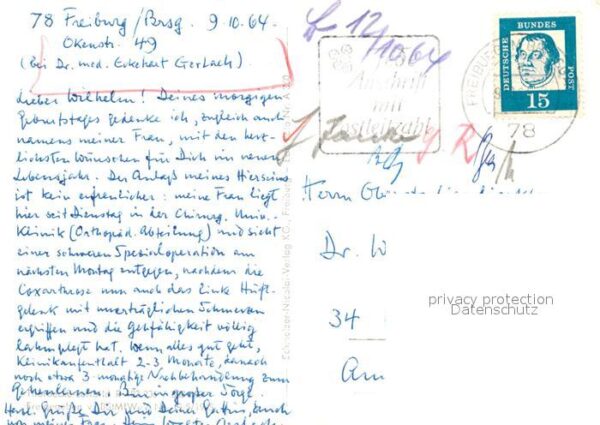 78 Freiburg/Brsg. 9.10.64
Okenstr. 49
(bei Dr. med. Eckehart Gerlach).
Lieber Wilhelm! Deines morgigen
Geburtstages gedenke ich, zugleich auch
namens meiner Frau, mit den herz-
lichsten Wünschen für Dich im neuen
Lebensjahr. Der Anlaß meines Hierseins
ist kein erfreulicher: meine Frau liegt
hier seit Dienstag in der Chirurg. Univ.-
Klinik (Orthopäd. Abteilung) und sieht
einer schweren Spezialoperation am
nächsten Montag entgegen, nachdem die
Coxarthrose nun auch das linke Hüft-
gelenk mit unerträglichen Schmerzen
ergriffen und die Gehfähigkeit völlig
lahmgelegt hat. Wenn alles gut geht,
Klinikaufenthalt 2-3 Monate, danach
noch etwa 3 monatige Nachbehandlung zum
Gehenlernen. Bin in großer Sorge.
Herzl. Grüße, Dir und Deiner Gattin, auch
von meiner Frau. Dein
Schöning-Nicolai-Verlag KG. Freiburg
12/10 64
Anschrift
mit
Postleitzahl
FREIBURG
78
DEUTSCHE BUNDES POST
15
Herrn
Dr. W
34
Am
privacy protection
Datenschutz